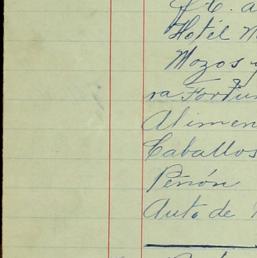 Hotel
Mozos y
ra Fortu
Alimen
Caballos
Peñón
Auto de